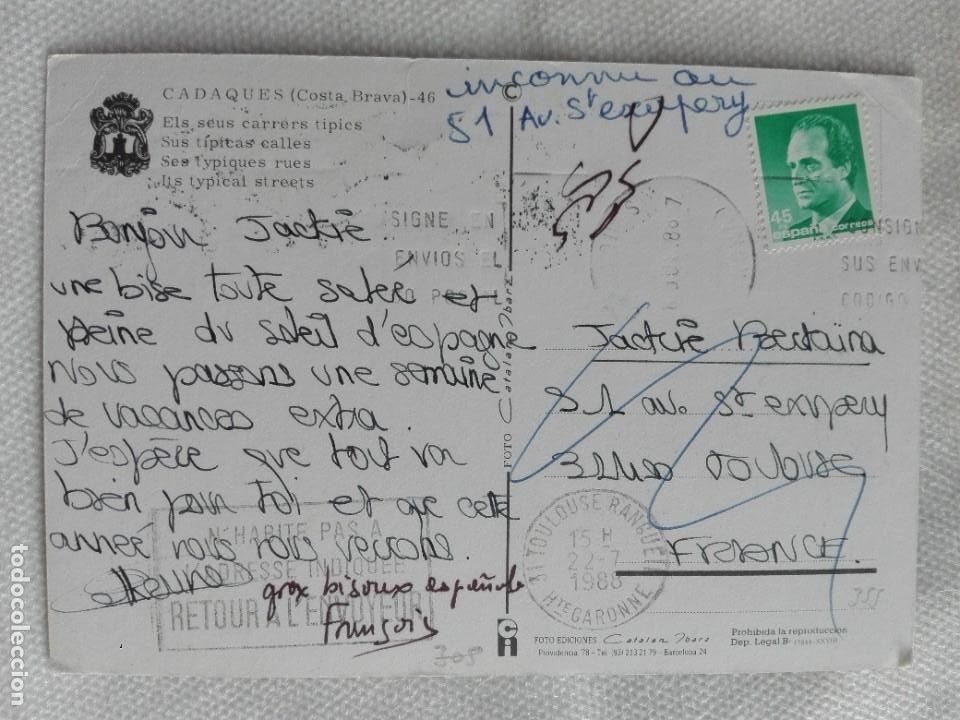 CADAQUES (Costa Brava)-46
Els seus carrers típics
Sus típicas calles
Ses typiques rues
Its typical streets
inconnu au
51 Av. St exupery
45
españa correos
SIGNE EN
ENVIOS EL
SUS ENV
CODIGO
Bonjour Jackie
une bise toute salée et
pleine du soleil d'espagne
Nous passons une semaine
de vacances extra.
J'espère que tout va
bien pour toi et que cette
année nous nous verrons.
grox bisoux español
François
N'HABITE PAS A
L'ADRESSE INDIQUÉE
RETOUR A L'ENVOYEUR
FOTO Catalan Ibarz
Jackie
51 av. St exupery
31400 TOULOUSE
FRANCE.
31 TOULOUSE RANGUEIL
15 H
22-7
1988
Hte GARONNE
355
305
FOTO EDICIONES Catalan Ibarz
Providencia 78 - Tel. (93) 213 21 79 - Barcelona 24
Prohibida la reproducción
Dep. Legal B-
todocoleccion.net